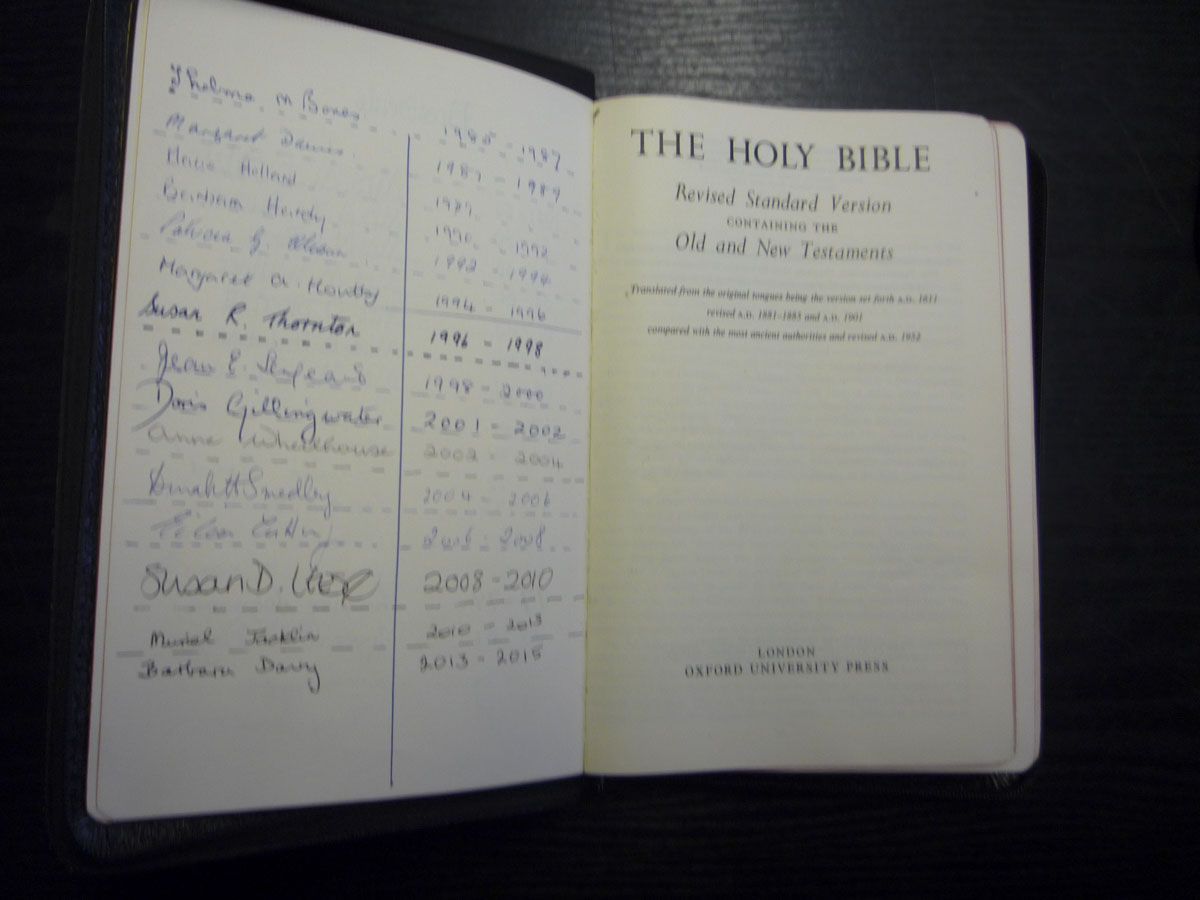 Thelma M 1985 - 1987
Margaret 1987 - 1989
Holland 1989
Barbara Hardy 1990 - 1992
Patricia 1992 - 1994
Margaret A. 1994 - 1996
Susan R. Thornton 1996 - 1998
Jean E. 1998 - 2000
Doris Gillingwater 2001 - 2002
Anne Wheelhouse 2002 - 2004
Smedley 2004 - 2006
2006 - 2008
Susan D. 2008 - 2010
Muriel Jacklin 2010 - 2013
Barbara Davy 2013 - 2015
THE HOLY BIBLE
Revised Standard Version
CONTAINING THE
Old and New Testaments
Translated from the original tongues being the version set forth A.D. 1611
revised A.D. 1881–1885 and A.D. 1901
compared with the most ancient authorities and revised A.D. 1952
LONDON
OXFORD UNIVERSITY PRESS